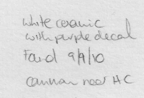 white ceramic
with purple decal
Found 9/9/10
cannan near HC